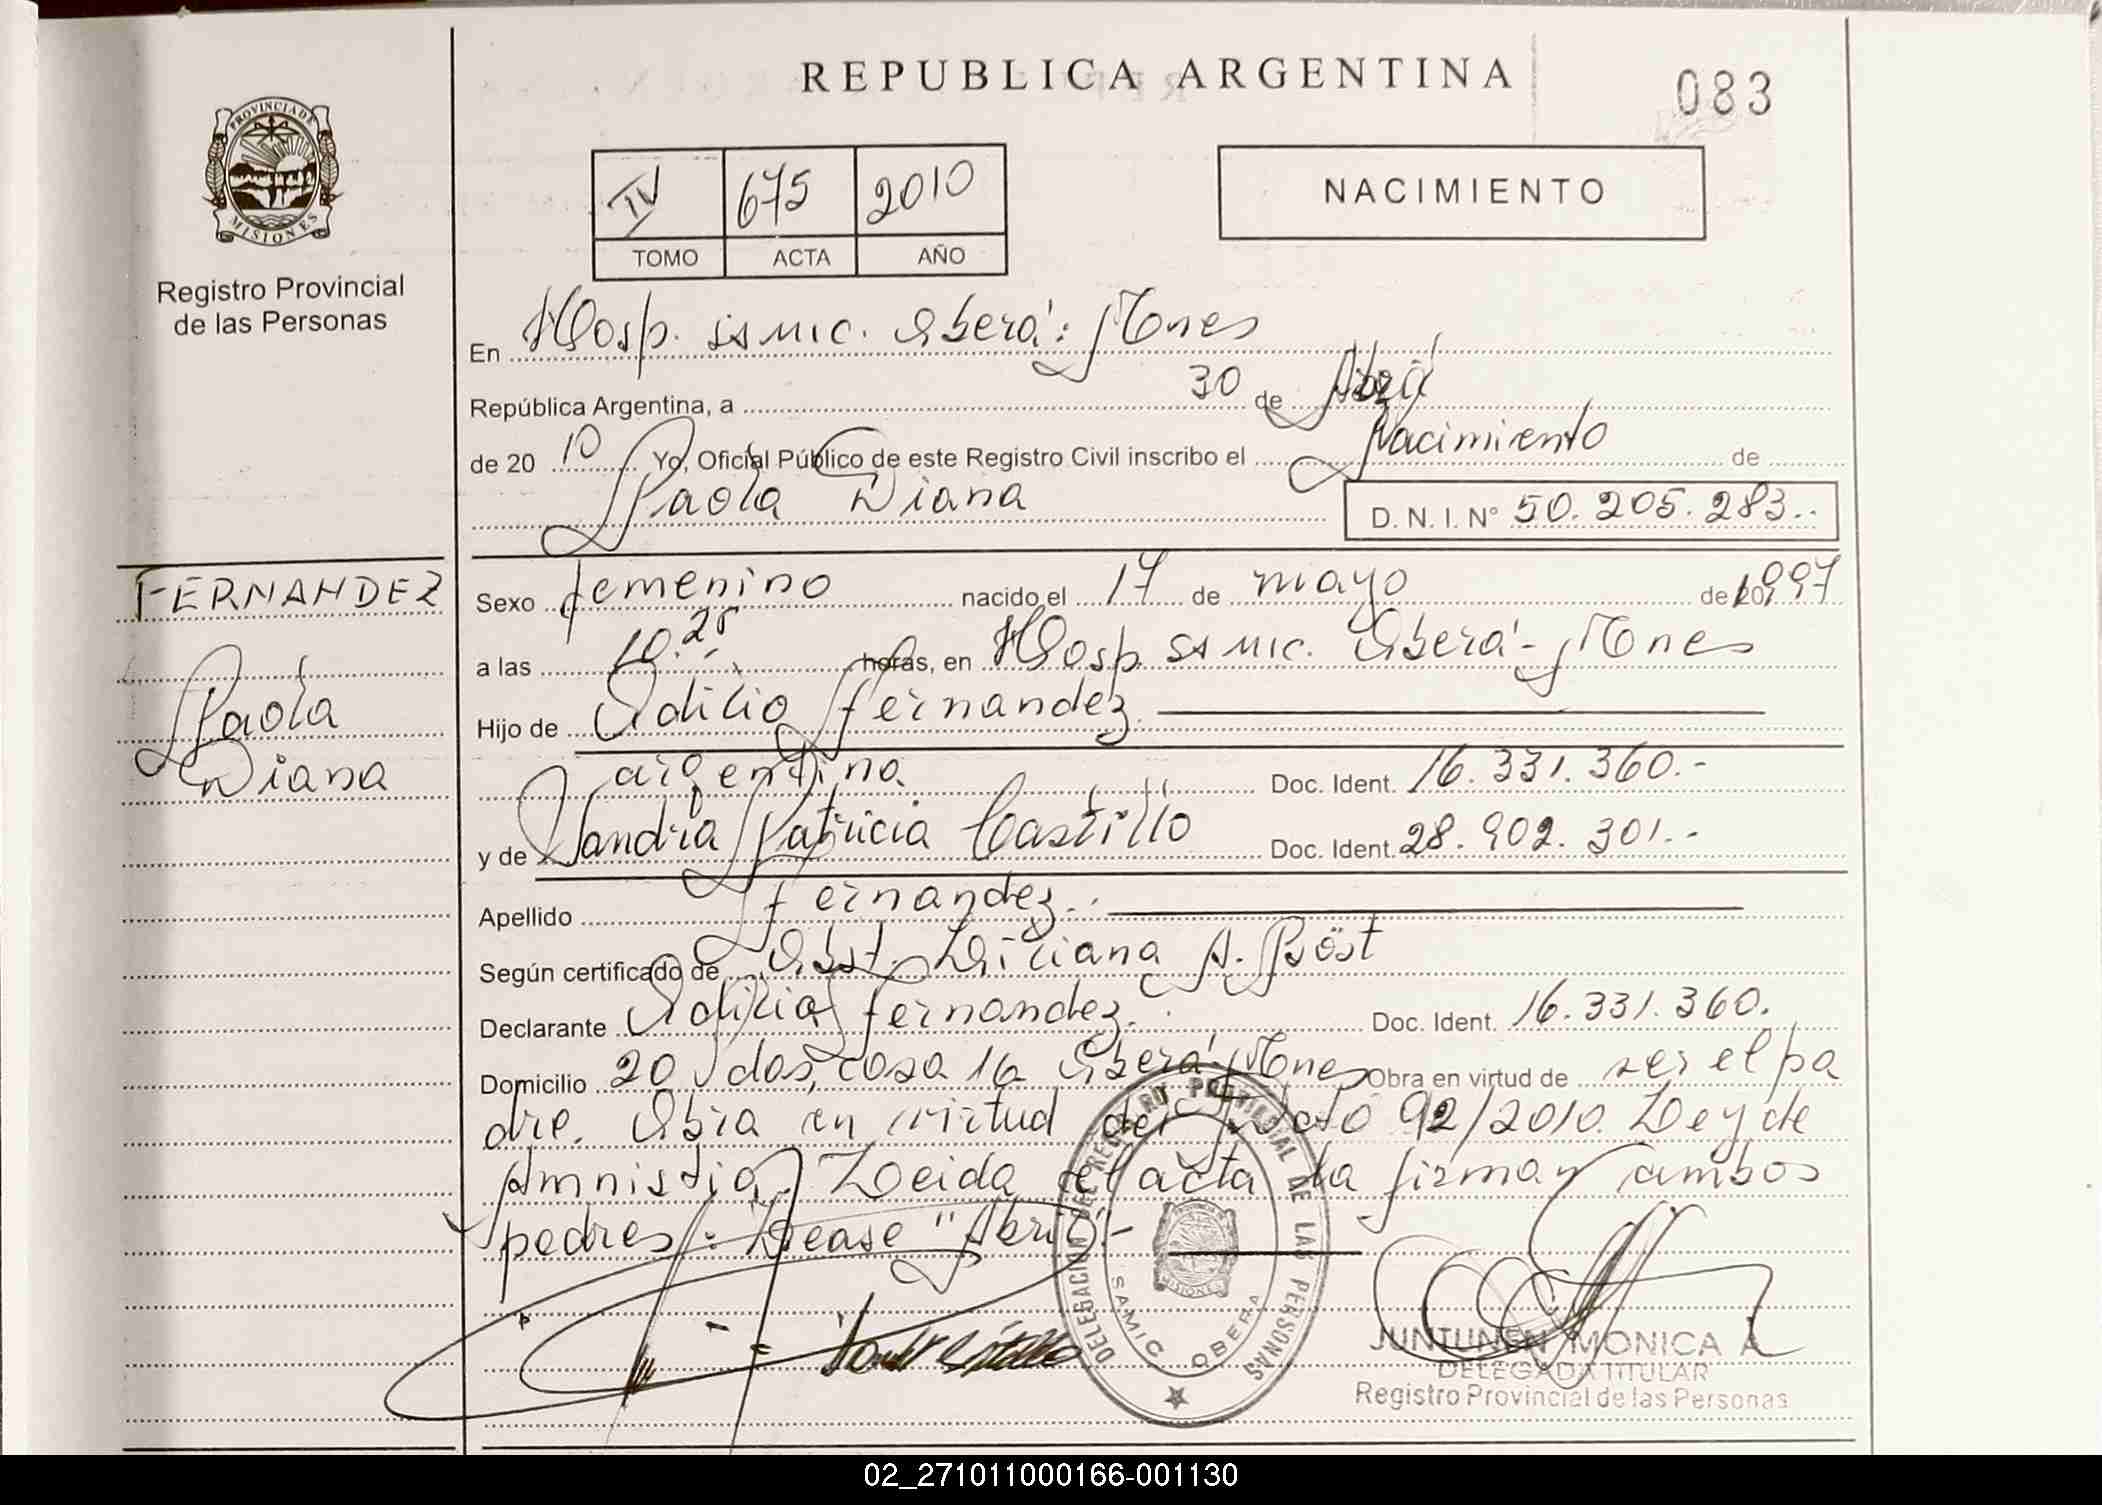 REPUBLICA ARGENTINA
083
PROVINCIA DE
MISIONES
Registro Provincial
de las Personas
IV 675 2010
TOMO ACTA AÑO
NACIMIENTO
En Hosp. samic. Oberá: Mones
República Argentina, a 30 de Abril
de 20 10 Yo, Oficial Público de este Registro Civil inscribo el Nacimiento de
Paola Diana D. N. I. N° 50.205.283..
FERNANDEZ
Paola
Diana
Sexo femenino nacido el 17 de mayo de 1997
a las 10.25 horas, en Hosp samic. Oberá - Mones
Hijo de Odilio fernandez.
argentino. Doc. Ident. 16.331.360.-
y de Sandra Patricia Castillo Doc. Ident. 28.902.301.-
Apellido fernandez..
Según certificado de Obst. Liliana A. Böst
Declarante Odilio fernandez. Doc. Ident. 16.331.360.
Domicilio 20 vdas, casa 16 Oberá: Mones Obra en virtud de ser el pa
dre. Obra en virtud del 92/2010. Ley de
Amnistia. Leida el acta la firman ambos
padres: Léase "Abril".-
DELEGACION DEL REGISTRO PROVINCIAL DE LAS PERSONAS
SAMIC OBERA
MISIONES
JUNTUNEN MONICA A
DELEGADA TITULAR
Registro Provincial de las Personas
02_271011000166-001130